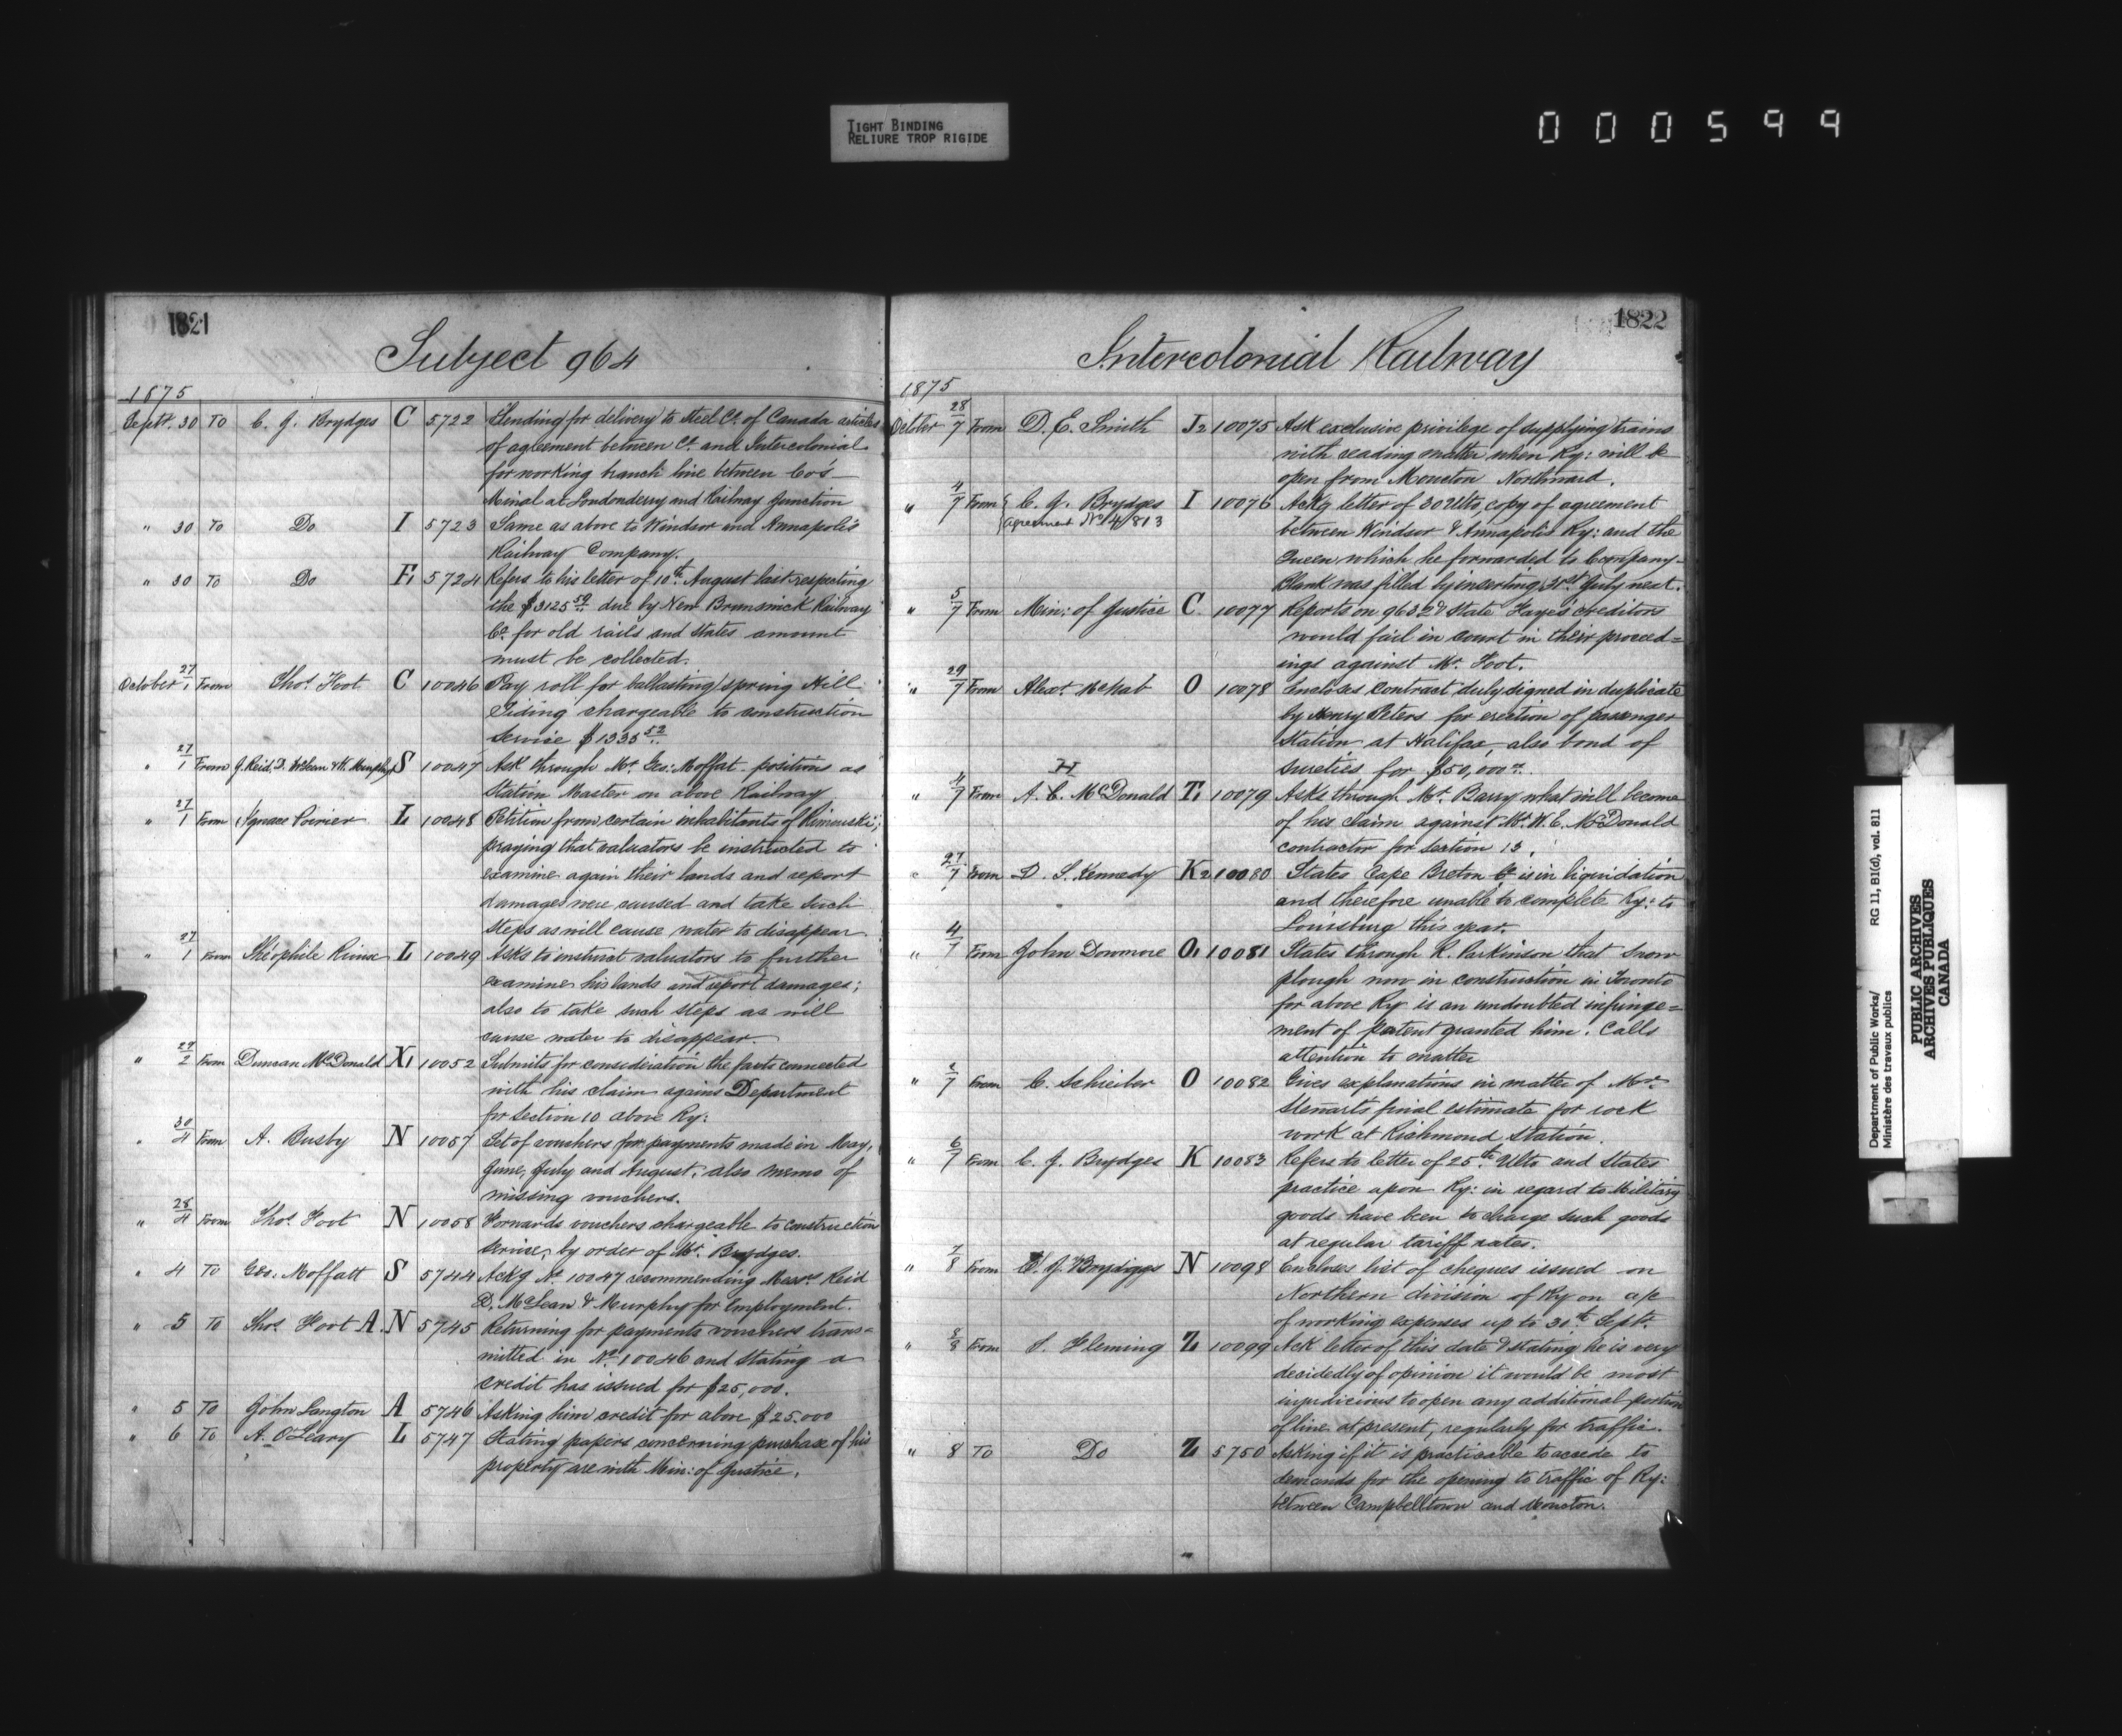 TIGHT BINDING
RELIURE TROP RIGIDE
000599
1821
Subject 964
1875
Septr. 30 To C. J. Brydges C 5722 Sending for delivery to Steel Co. of Canada articles
of agreement between Co. and Intercolonial
for working branch line between Co's
Minal at Londonderry and Railway Junction
" 30 To Do I 5723 Same as above to Windsor and Annapolis
Railway Company.
" 30 To Do F1 5724 Refers to his letter of 10th August last respecting
the $3125 50 due by New Brunswick Railway
Co. for old rails and States amount
must be collected.
October 27/1 From Thos. Foot C 10046 Pay roll for ballasting spring Hill
Siding chargeable to construction
Service $1335 52
" 27/1 From J. Reid, D. McLean & W. Murphy S 10047 Ask through Mr. Geo: Moffat positions as
Station Master on above Railway
" 27/1 From Ignace Poirier L 10048 Petition from certain inhabitants of Rimouski;
praying that valuators be instructed to
examine again their lands and report
damages were caused and take such
steps as will cause water to disappear.
" 27/1 From Théophile L 10049 Asks to instruct valuators to further
examine his lands and report damages;
also to take such steps as will
cause water to disappear.
" 29/2 From Duncan McDonald X1 10052 Submits for consideration the facts connected
with his claim agains Department
for section 10 above Ry:
" 30/4 From A. Busby N 10057 Set of vouchers for payments made in May,
June, July and August, also memo of
missing vouchers.
" 28/4 From Thos. Foot N 10058 Forwards vouchers chargeable to construction
service, by order of Mr. Brydges.
" 4 To Geo. Moffatt S 5744 Ackg No. 10047 recommending Messrs Reid
D. McLean & Murphy for employment.
" 5 To Thos. Foot A. N 5745 Returning for payments vouchers trans=
mitted in No. 10046 and stating a
credit has issued for $25,000.
" 5 To John Langton A 5746 Asking him credit for above $25.000
" 6 To A. O'Leary L 5747 Stating papers concerning purchase of his
property are with Min: of Justice.
1822
Intercolonial Railway
1875
October 28/7 From D. E. Smith J2 10075 Ask exclusive privilege of supplying trains
with reading matter when Ry: will be
open from Moncton Northward.
" 4/7 From C. J. Brydges I 10076 Ackg letter of 30 Ulto, copy of agreement
agreement No 4813
between Windsor & Annapolis Ry: and the
Queen which he forwarded to Company-
Blank was filled by inserting 31st July next.
" 5/7 From Min: of Justice C 10077 Reports on 9636 & State Faye's creditors
would fail in court in their proceed=
ings against Mr. Foot.
" 29/7 From Alexr. McNab O 10078 Encloses contract duly signed in duplicate
by Henry Peters for erection of passenger
Station at Halifax, also bond of
sureties for $50,000
" 4/7 From A. C. McDonald T1 10079 Asks through Mr. Barry what will become
H
of his claim against Mr. W. E. McDonald
contractor for section 13.
" 27/7 From D. S. Kennedy K2 10080 States Cape Breton Co. is in liquidation
and therefore unable to complete Ry: to
Louisburg this year.
" 4/7 From John Dowmore O1 10081 States through R. Parkinson that snow
plough now in construction in Toronto
for above Ry is an undoubted infringe=
ment of patent granted him. Calls
attention to matter
" From C. Schreiber O 10082 Gives explanations in matter of Mr.
Stewarts final estimate for rock
work at Richmond Station.
" 6/7 From C. J. Brydges K 10083 Refers to letter of 25th Ulto and States
practice upon Ry: in regard to Military
goods have been to charge such goods
at regular tariff rates.
" 7/8 From C. J. Brydges N 10098 Encloses list of cheques issued on
Northern division of Ry on a/c
of working expenses up to 30th Septr.
" 8/8 From S. Fleming Z 10099 Ack letter of this date & stating he is very
decidedly of opinion it would be most
injudicious to open any additional portion
of line at present, regularly for traffic.
" 8 To Do Z 5750 Asking if it is practicable to accede to
demands for the opening to traffic of Ry:
between Campbelltown and Moncton.
Department of Public Works/ RG 11, B1(d), vol. 811
Ministère des travaux publics
PUBLIC ARCHIVES
ARCHIVES PUBLIQUES
CANADA